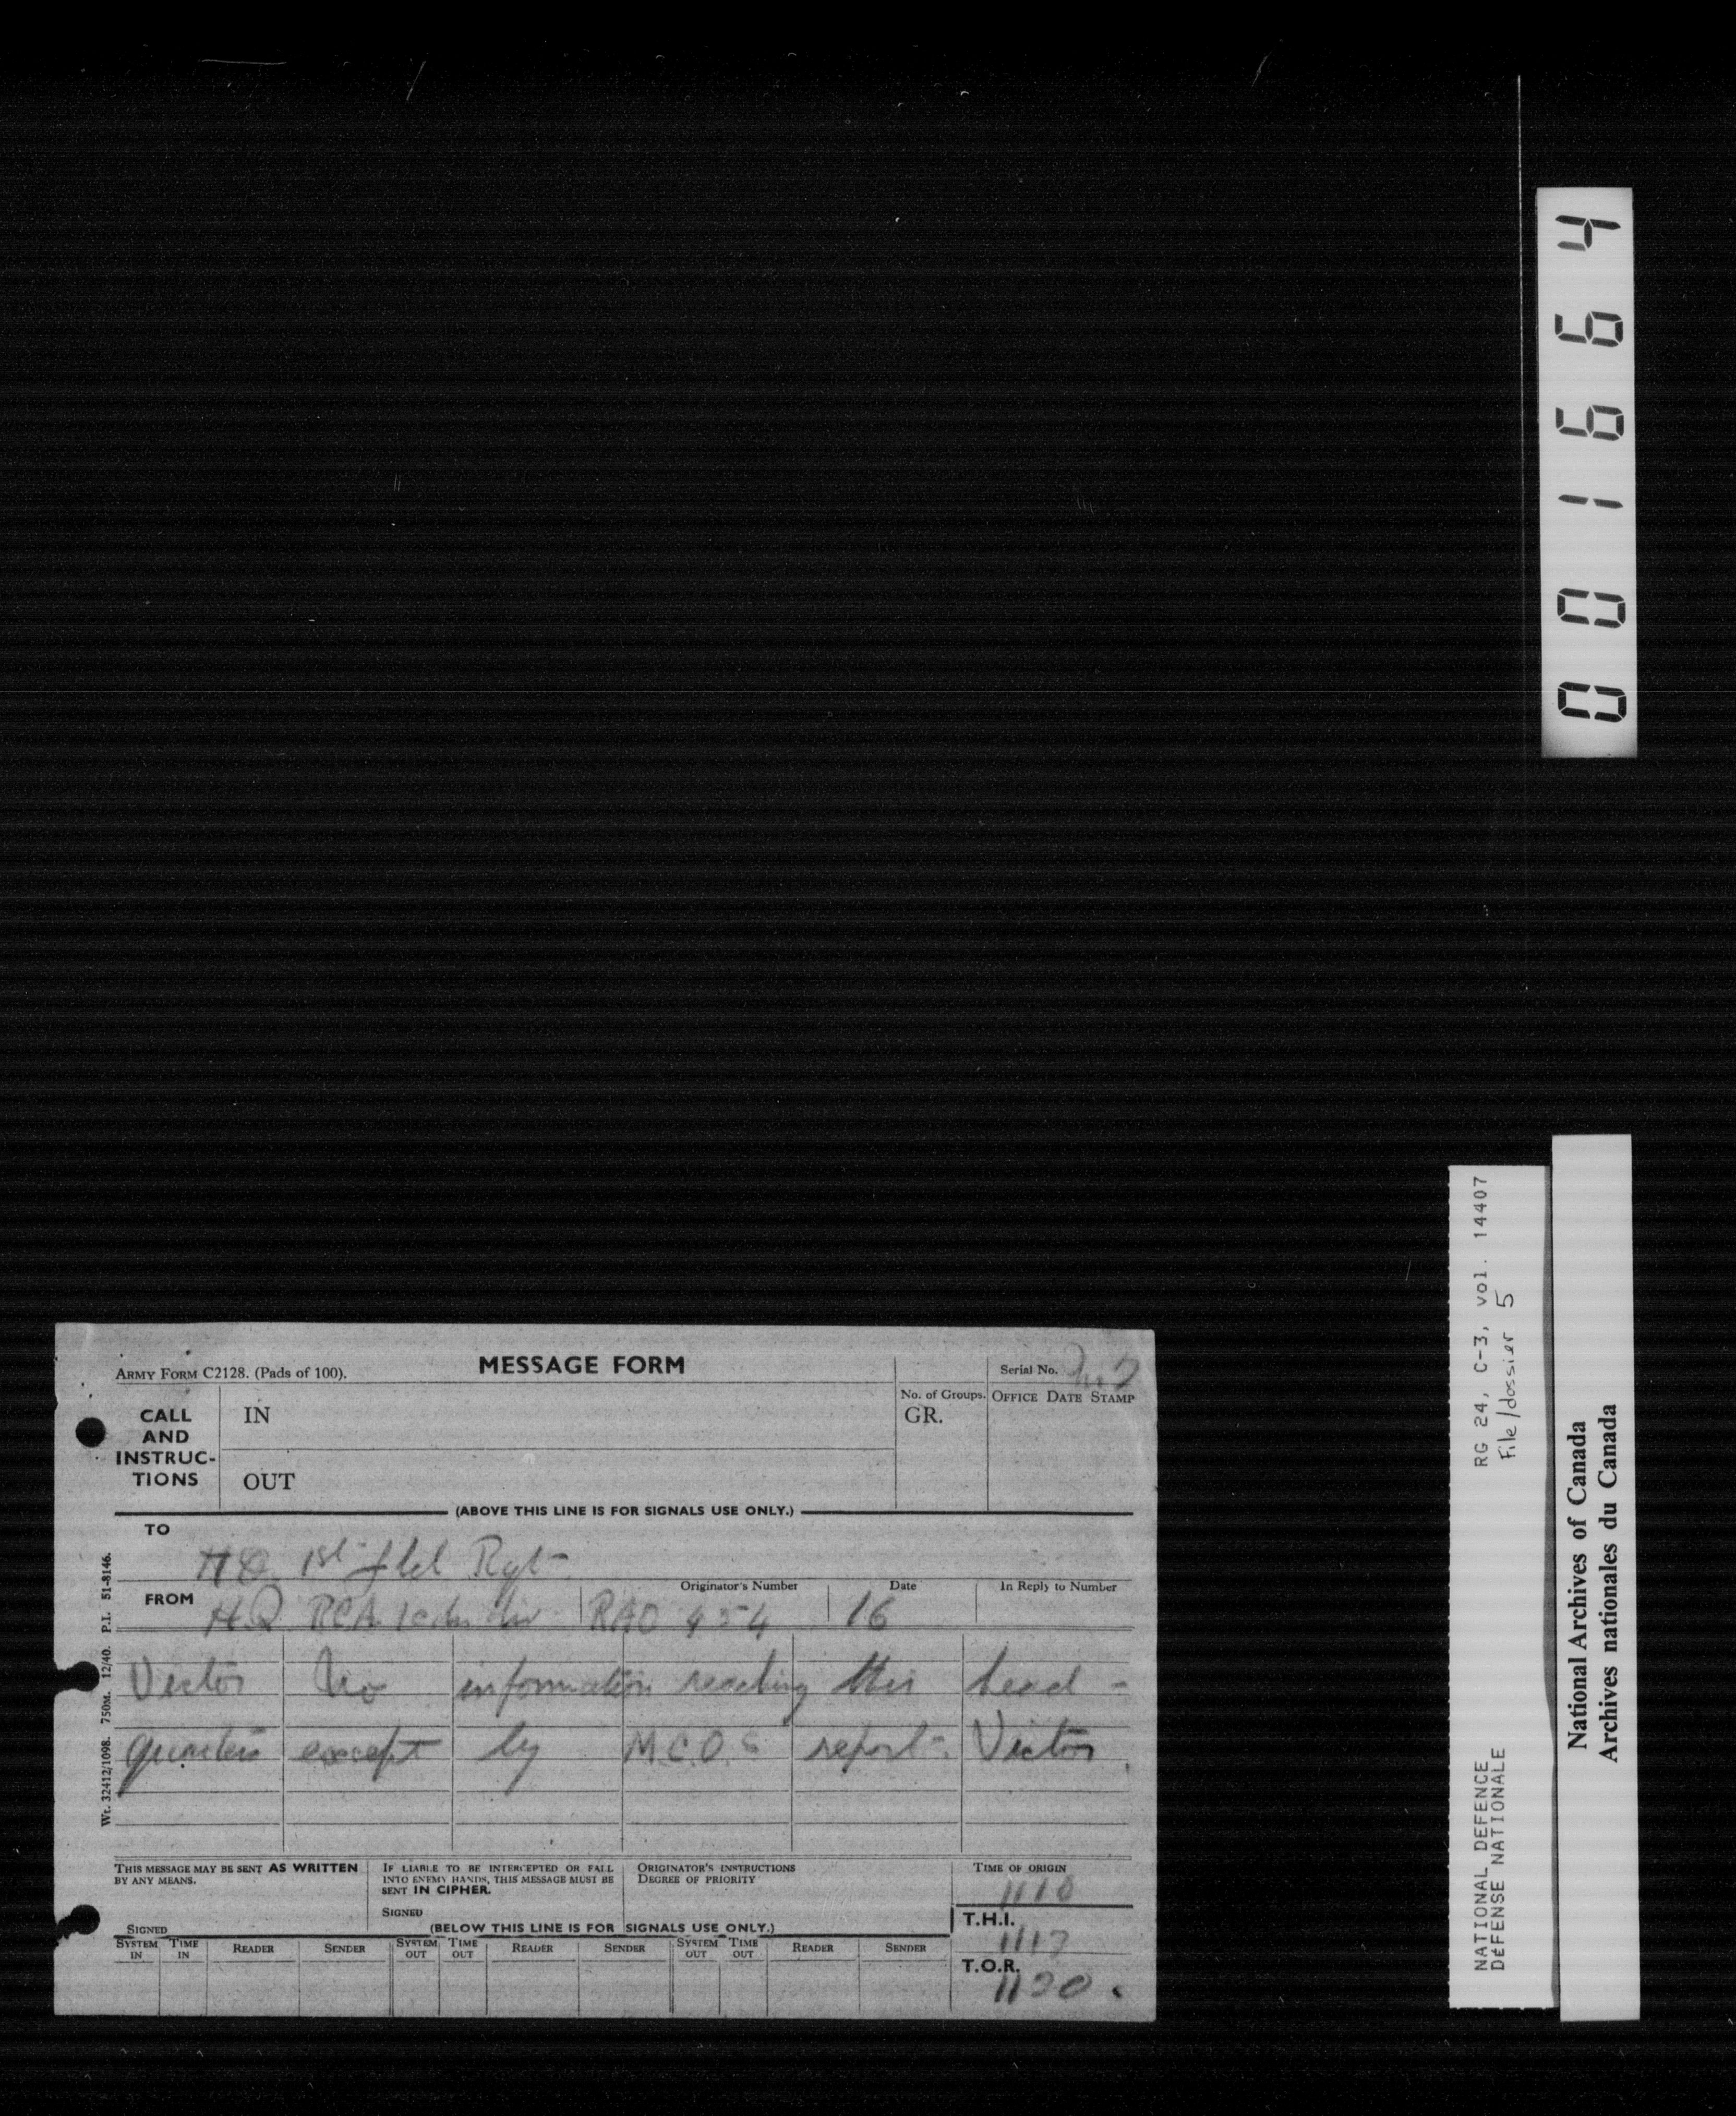 001664
ARMY FORM C2128. (Pads of 100).
MESSAGE FORM
Serial No.
CALL AND INSTRUC-TIONS
IN
OUT
No. of Groups.
GR.
OFFICE DATE STAMP
(ABOVE THIS LINE IS FOR SIGNALS USE ONLY.)
TO
HQ 1st fld Rgt
FROM
Originator's Number
Date
In Reply to Number
HQ RCA 1 cdn div RAO 454 16
Victor No information reaching this head-
quarters except by M.C.O.S report. Victor.
THIS MESSAGE MAY BE SENT AS WRITTEN
BY ANY MEANS.
SIGNED
IF LIABLE TO BE INTERCEPTED OR FALL
INTO ENEMY HANDS, THIS MESSAGE MUST BE
SENT IN CIPHER.
SIGNED
ORIGINATOR'S INSTRUCTIONS
DEGREE OF PRIORITY
TIME OF ORIGIN
1110
(BELOW THIS LINE IS FOR SIGNALS USE ONLY.)
T.H.I.
1117
T.O.R.
SYSTEM IN TIME IN READER SENDER SYSTEM OUT TIME OUT READER SENDER SYSTEM OUT TIME OUT READER SENDER
Wt. 32412/1098. 750M. 12/40. P.I. 51-8146.
NATIONAL DEFENCE RG 24, C-3, vol. 14407
DÉFENSE NATIONALE File/dossier 5
National Archives of Canada
Archives nationales du Canada